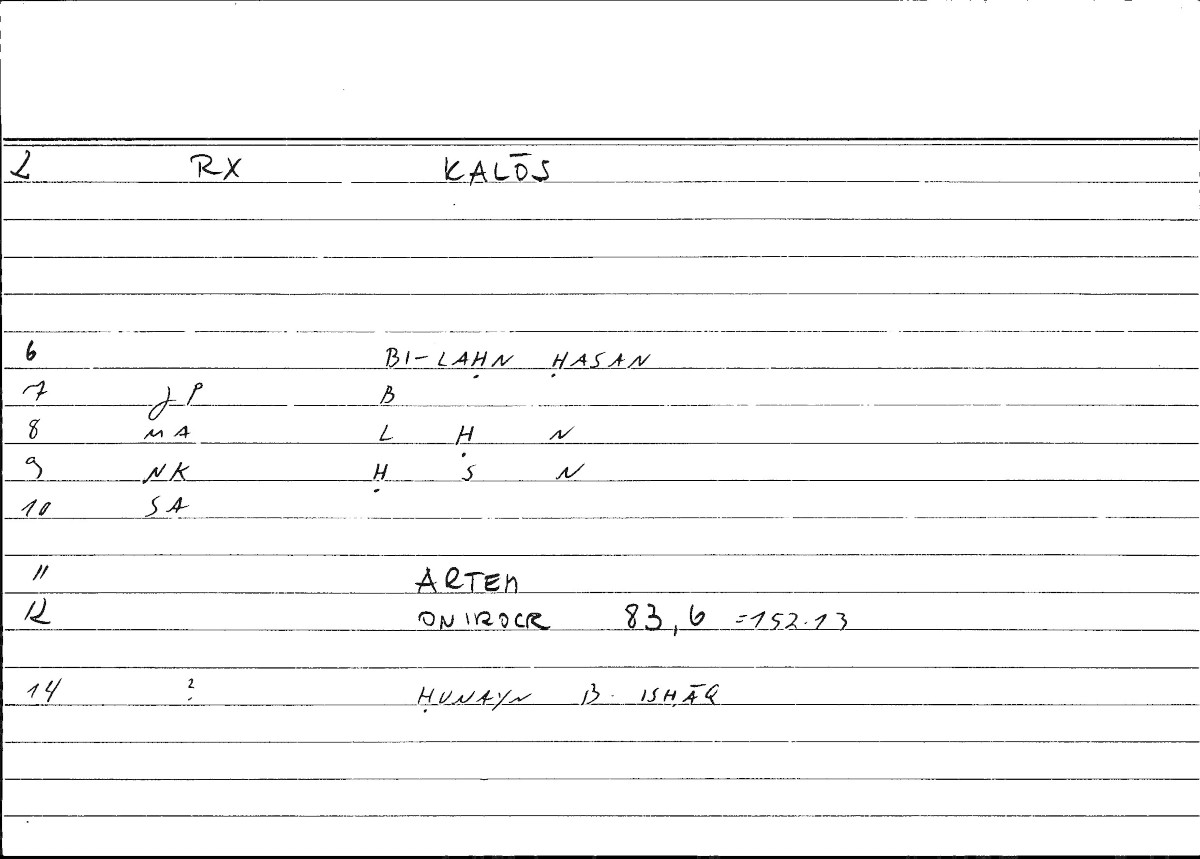 2 RX KALŌS
6 BI-LAḤN ḤASAN
7 JP B
8 MA L Ḥ N
9 NK Ḥ S N
10 SA
11 ARTEM
12 ONIROCR 83,6 =152.13
14 ? ḤUNAYN B. ISḤĀQ